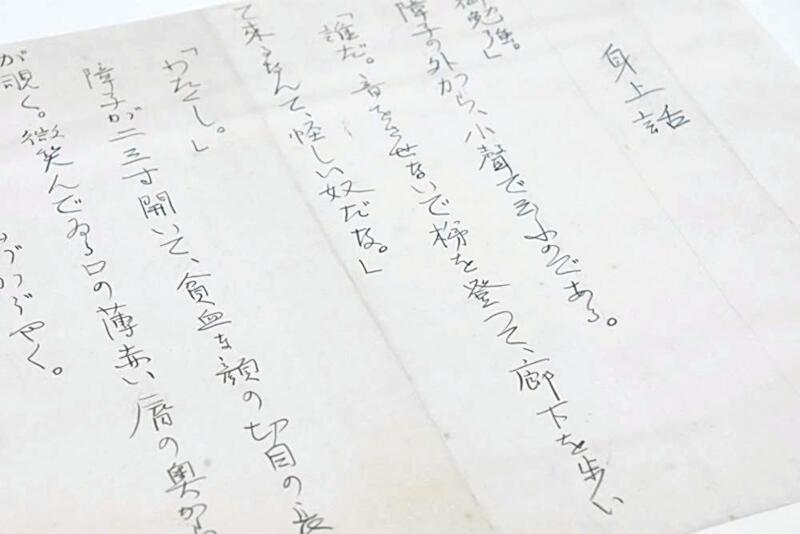 身上話
御勉強。」
障子の外から、小聲で云ふのである。
「誰だ。音をさせないで梯を登つて、廊下を歩い
て來るなんて、怪しい奴だな。」
「わたくし。」
障子が二三寸開いて、貧血な顔の切目の長
が覗く。微笑んでゐる口の薄赤い唇の奥から
やく。